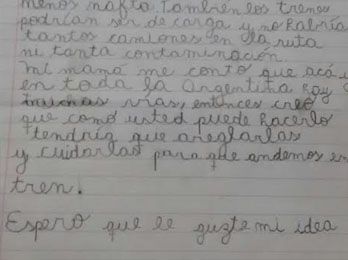 menos nafta. También los trenes
podrían ser de carga y no habría
tantos camiones en la ruta
ni tanta contaminación.
Mi mamá me contó que acá y
en toda la Argentina hay
muchas vías, entonces creo
que como usted puede hacerlo
tendría que areglarlas
y cuidarlas para que andemos en
tren.
Espero que le guzte mi idea